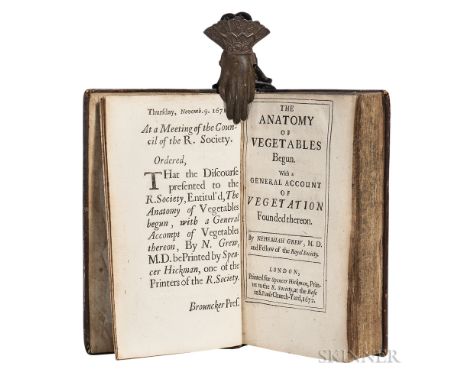 Thursday, Novemb. 9. 167
At a Meeting of the Coun-
cil of the R. Society.
Ordered,
THat the Discourse
presented to the
R. Society, Entitul'd, The
Anatomy of Vegetables
begun, with a General
Accompt of Vegetables
thereon, By N. Grew,
M.D. be Printed by Spen-
cer Hickman, one of the
Printers of the R. Society.
Brouncker Pres.
THE
ANATOMY
OF
VEGETABLES
Begun.
With a
GENERAL ACCOUNT
OF
VEGETATION
Founded thereon.
By NEHEMIAH GREW, M. D.
and Fellow of the Royal Society.
LONDON,
Printed for Spencer Hickman, Prin-
ter to the R. Society, at the Rose
in S. Pauls Church-Yard, 1672.
SKINNER